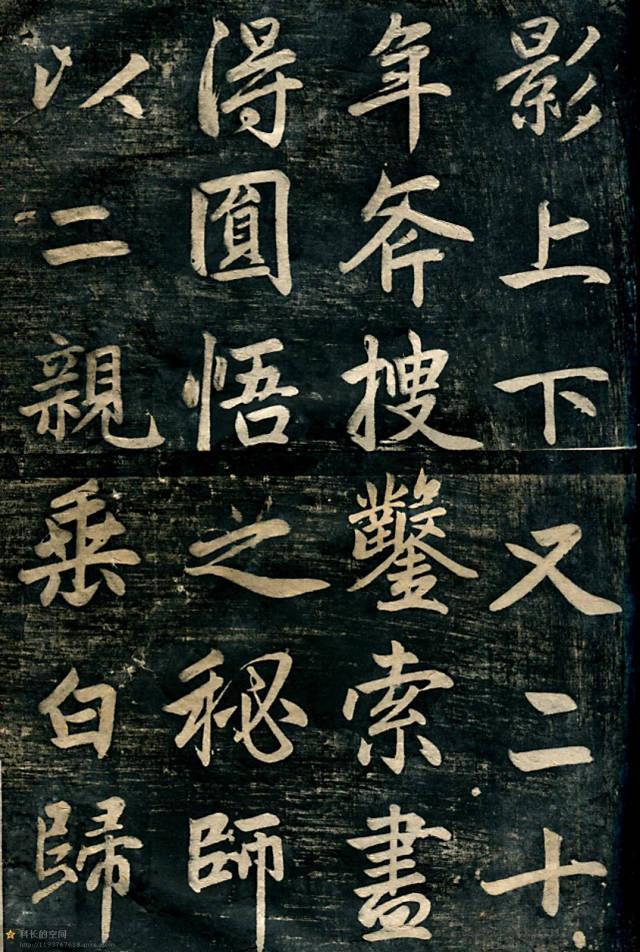 影上下又二十
年斧搜鑿索盡
得圓悟之秘師
以二親垂白歸
科长的空间